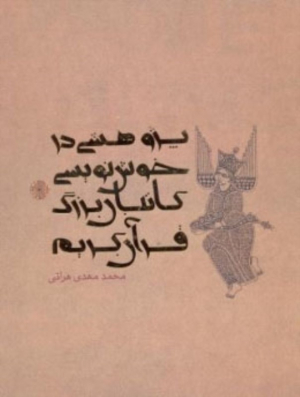 پژوهشی در
خوش‌نویسی
کاتبان بزرگ
قرآن کریم
محمد مهدی هراتی